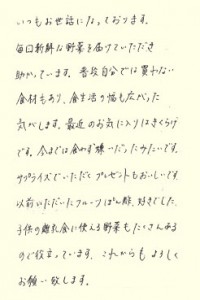 いつもお世話になっております。
毎回新鮮な野菜を届けていただき
助かっています。普段自分では買わない
食材もあり、食生活の幅も広がった
気がします。最近のお気に入りはきくらげ
です。今までは食わず嫌いだったみたいです。
サプライズでいただくプレゼントもおいしいです。
以前いただいたフルーツぽん酢、好きでした。
子供の離乳食に使える野菜もたくさんある
ので役立っています。これからもよろしく
お願い致します。